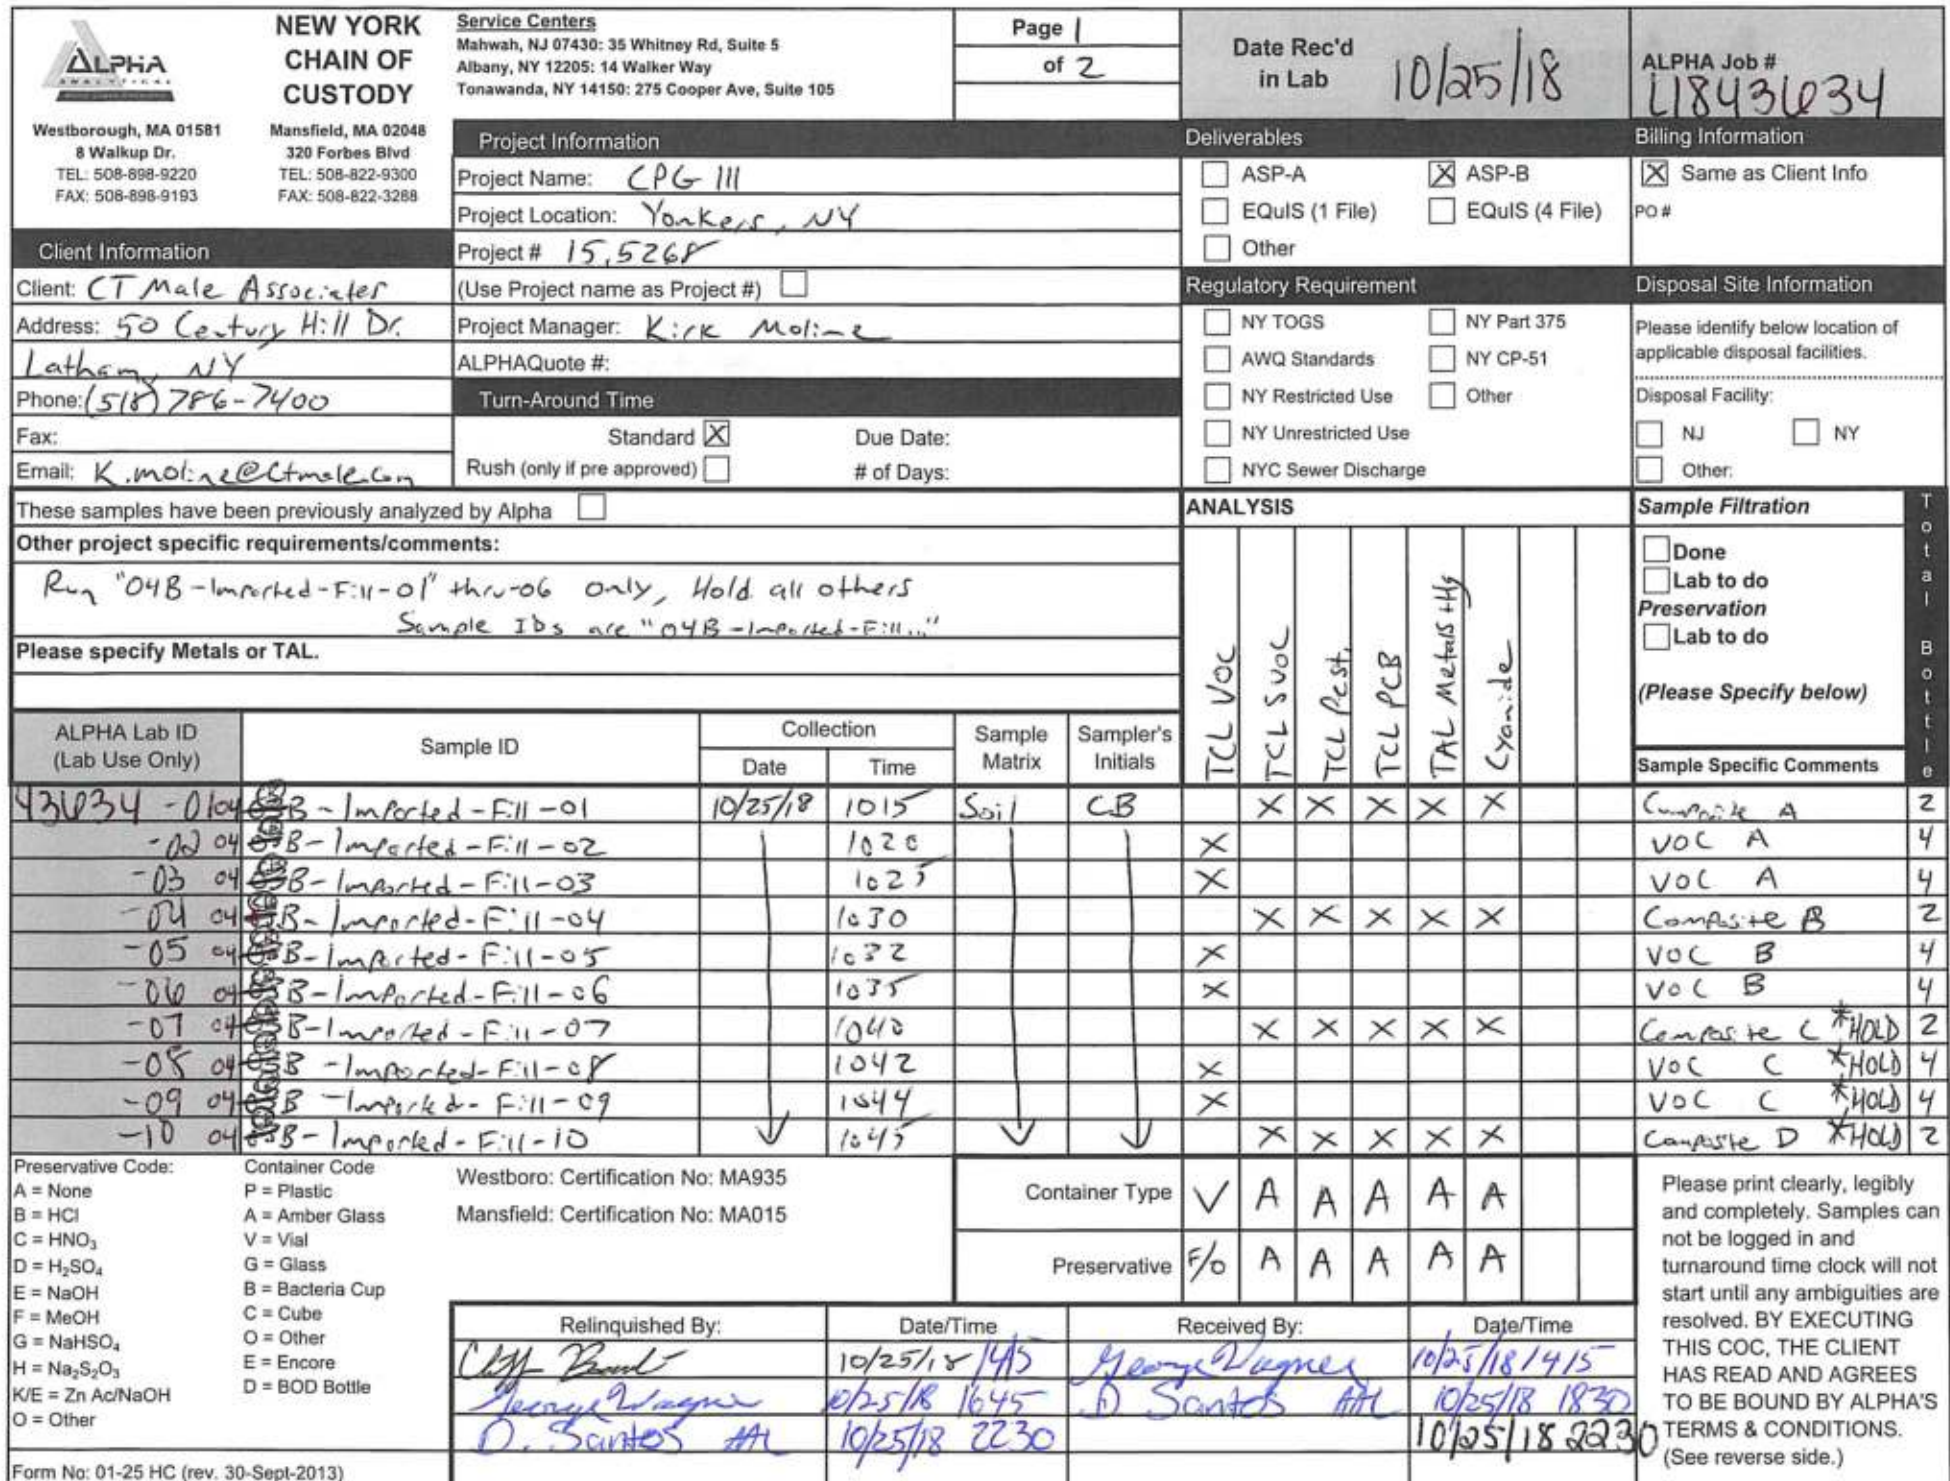 ALPHA
ANALYTICAL
NEW YORK
CHAIN OF
CUSTODY
Westborough, MA 01581
8 Walkup Dr.
TEL: 508-898-9220
FAX: 508-898-9193
Mansfield, MA 02048
320 Forbes Blvd
TEL: 508-822-9300
FAX: 508-822-3288
Service Centers
Mahwah, NJ 07430: 35 Whitney Rd, Suite 5
Albany, NY 12205: 14 Walker Way
Tonawanda, NY 14150: 275 Cooper Ave, Suite 105
Page 1
of 2
Date Rec'd
in Lab
10/25/18
ALPHA Job #
L1843634
Client Information
Client: CT Male Associates
Address: 50 Century Hill Dr.
Latham, NY
Phone: (518) 786-7400
Fax:
Email: K.moline@Ctmale.com
Project Information
Project Name: CPG III
Project Location: Yonkers, NY
Project # 15.5268
(Use Project name as Project #)
Project Manager: Kirk Moline
ALPHAQuote #:
Turn-Around Time
Standard X Due Date:
Rush (only if pre approved) # of Days:
Deliverables
ASP-A X ASP-B
EQuIS (1 File) EQuIS (4 File)
Other
Regulatory Requirement
NY TOGS NY Part 375
AWQ Standards NY CP-51
NY Restricted Use Other
NY Unrestricted Use
NYC Sewer Discharge
Billing Information
X Same as Client Info
PO #
Disposal Site Information
Please identify below location of
applicable disposal facilities.
Disposal Facility:
NJ NY
Other:
These samples have been previously analyzed by Alpha
Other project specific requirements/comments:
Run "04B-Imported-Fill-01" thru-06 only, Hold all others
Sample IDs are "04B-Imported-Fill..."
Please specify Metals or TAL.
ANALYSIS
TCL VOC
TCL SVOC
TCL Pest.
TCL PCB
TAL Metals +Hg
Cyanide
Sample Filtration
Done
Lab to do
Preservation
Lab to do
(Please Specify below)
Total Bottle
ALPHA Lab ID
(Lab Use Only)
Sample ID
Collection
Date Time
Sample
Matrix
Sampler's
Initials
Sample Specific Comments
43634 -01 04 B-Imported-Fill-01 10/25/18 1015 Soil CB X X X X X Composite A 2
-02 04 B-Imported-Fill-02 1020 X VOC A 4
-03 04 B-Imported-Fill-03 1025 X VOC A 4
-04 04 B-Imported-Fill-04 1030 X X X X X Composite B 2
-05 04 B-Imported-Fill-05 1032 X VOC B 4
-06 04 B-Imported-Fill-06 1035 X VOC B 4
-07 04 B-Imported-Fill-07 1040 X X X X X Composite C *HOLD 2
-08 04 B-Imported-Fill-08 1042 X VOC C *HOLD 4
-09 04 B-Imported-Fill-09 1044 X VOC C *HOLD 4
-10 04 B-Imported-Fill-10 1045 X X X X X Composite D *HOLD 2
Preservative Code:
A = None
B = HCl
C = HNO₃
D = H₂SO₄
E = NaOH
F = MeOH
G = NaHSO₄
H = Na₂S₂O₃
K/E = Zn Ac/NaOH
O = Other
Container Code
P = Plastic
A = Amber Glass
V = Vial
G = Glass
B = Bacteria Cup
C = Cube
O = Other
E = Encore
D = BOD Bottle
Westboro: Certification No: MA935
Mansfield: Certification No: MA015
Container Type V A A A A A
Preservative F/O A A A A A
Relinquished By: Date/Time Received By: Date/Time
10/25/18 1415 George Wagner 10/25/18 1415
George Wagner 10/25/18 1645 D. Santos AAL 10/25/18 1830
D. Santos AAL 10/25/18 2230 10/25/18 2230
Please print clearly, legibly
and completely. Samples can
not be logged in and
turnaround time clock will not
start until any ambiguities are
resolved. BY EXECUTING
THIS COC, THE CLIENT
HAS READ AND AGREES
TO BE BOUND BY ALPHA'S
TERMS & CONDITIONS.
(See reverse side.)
Form No: 01-25 HC (rev. 30-Sept-2013)